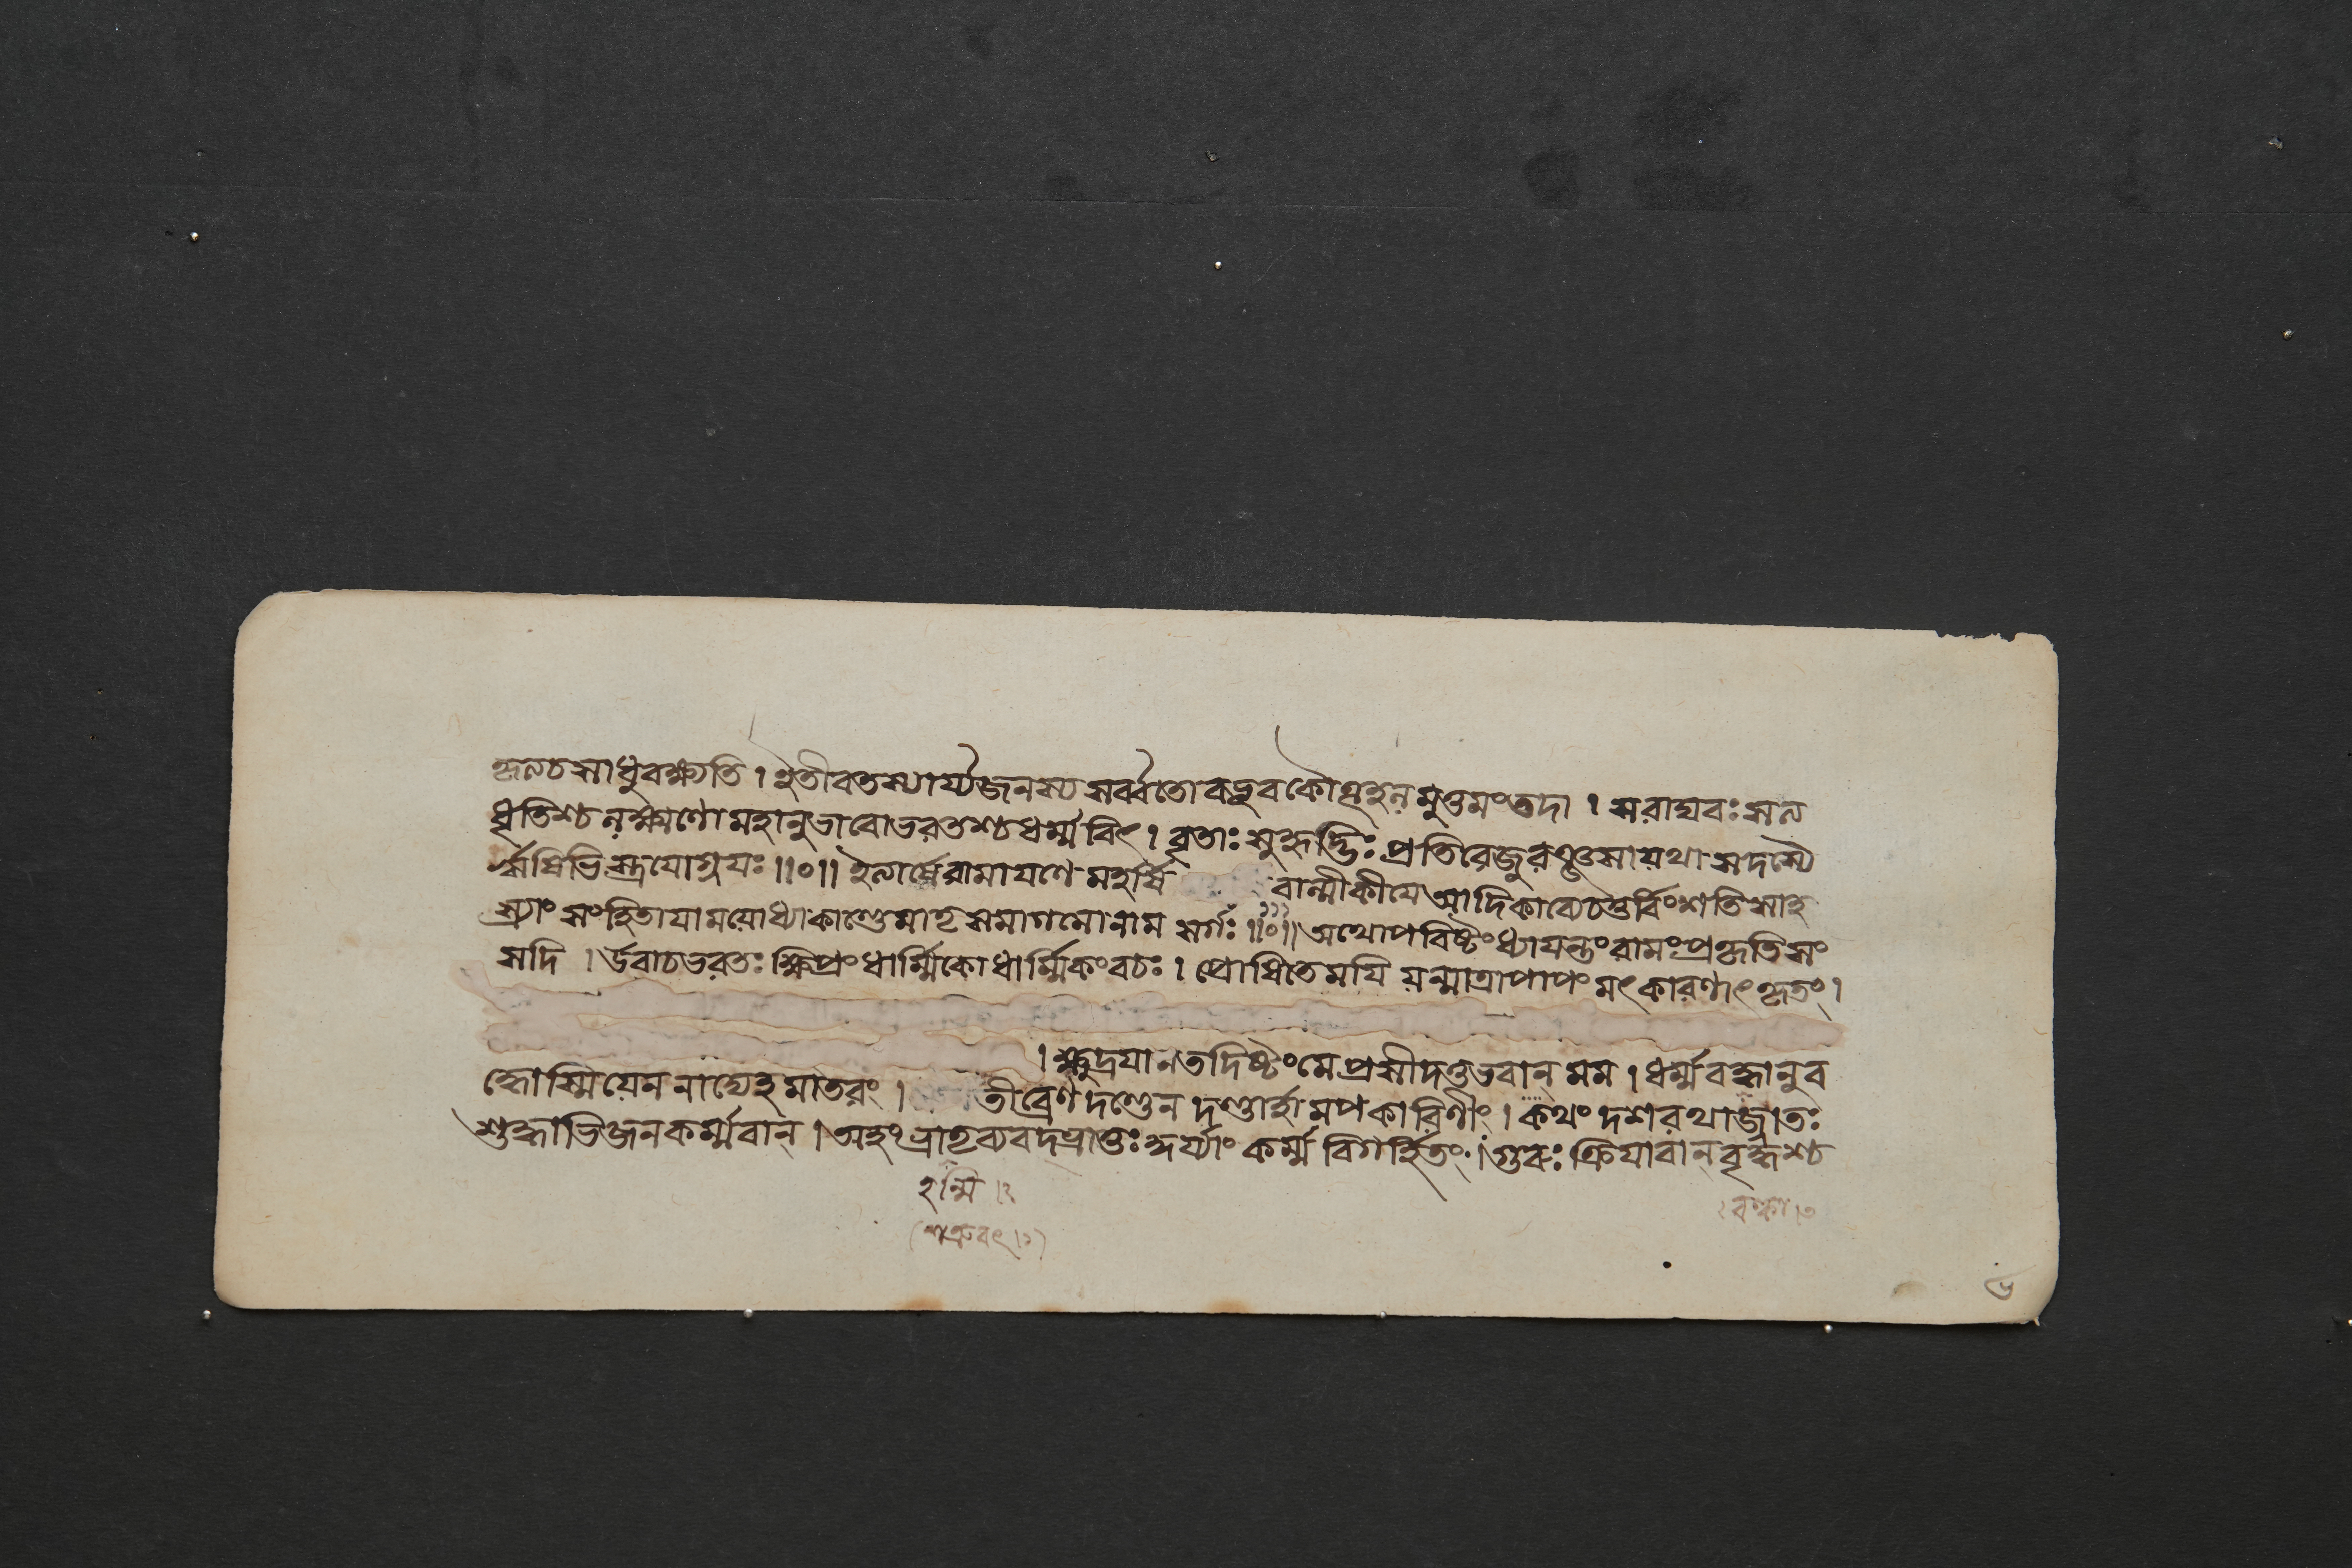 হৃত্য চ সাধু বক্ষ্যতি । ইতীব তস্যার্য্যজনস্য সর্ব্বতো বভূব কৌতূহলমুত্তমং তদা । স রাঘবঃ সত্য
ধৃতিশ্চ লক্ষ্মণো মহানুভাবো ভরতশ্চ ধর্ম্মবিৎ । বৃতাঃ সুহৃদ্ভিঃ প্রতিরেজুরঞ্জসা যথা সদস্যৈ
র্ঋষিভিস্ত্রযোগ্নযঃ ॥০॥ ইত্যার্ষে রামাযণে মহর্ষি বাল্মীকীযে আদিকাব্যে চতুর্বিংশতিসাহ
স্র্যাং সংহিতাযামযোধ্যাকাণ্ডে মাতৃসমাগমো নাম সর্গঃ ॥০॥ অথোপবিষ্টং ধ্যাযন্তং রামং প্রকৃতিসং
সদি । উবাচ ভরতঃ ক্ষিপ্রং ধার্ম্মিকো ধার্ম্মিকং বচঃ । প্রোষিতে মযি যন্মাত্রা পাপং মৎকারণাৎ কৃতং ।
। ক্ষুদ্রযা ন তদিষ্টং মে প্রসীদতু ভবান্ মম । ধর্ম্মবন্ধানুব
দ্ধোস্মি যেন নাদ্যেহ মাতরং । তীব্রেণ দণ্ডেন দণ্ডার্হামপকারিণীং । কথং দশরথাজ্জাতঃ
শুদ্ধাভিজনকর্ম্মবান্ । অহং কর্ম্ম বিগর্হিতং । গুরুঃ ক্রিযাবান্ বৃদ্ধশ্চ
হন্মি ।২
(শত্রুবৎ ।১)